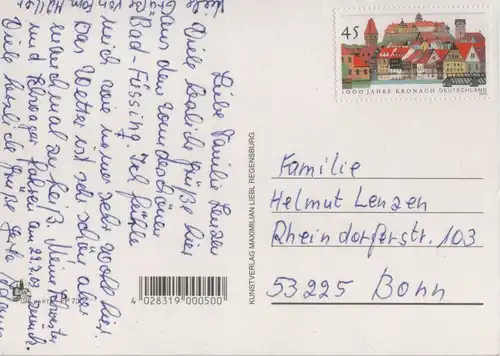 Liebe Familie Lenzen
Viele herzliche Grüße hier
aus dem wunderschönen
Bad-Füssing. Ich fühle
mich wie immer sehr wohl hier.
Das Wetter ist sehr schön aber
manchmal zu heiß. Meine Schwester
und Schwager fahren am 29.7.03 zurück.
Viele herzliche Grüße
Viele
Grüße
von
45
1000 JAHRE KRONACH DEUTSCHLAND
KUNSTVERLAG MAXIMILIAN LIEBL REGENSBURG
Familie
Helmut Lenzen
Rheindorferstr. 103
53225 Bonn
4 028319 000500